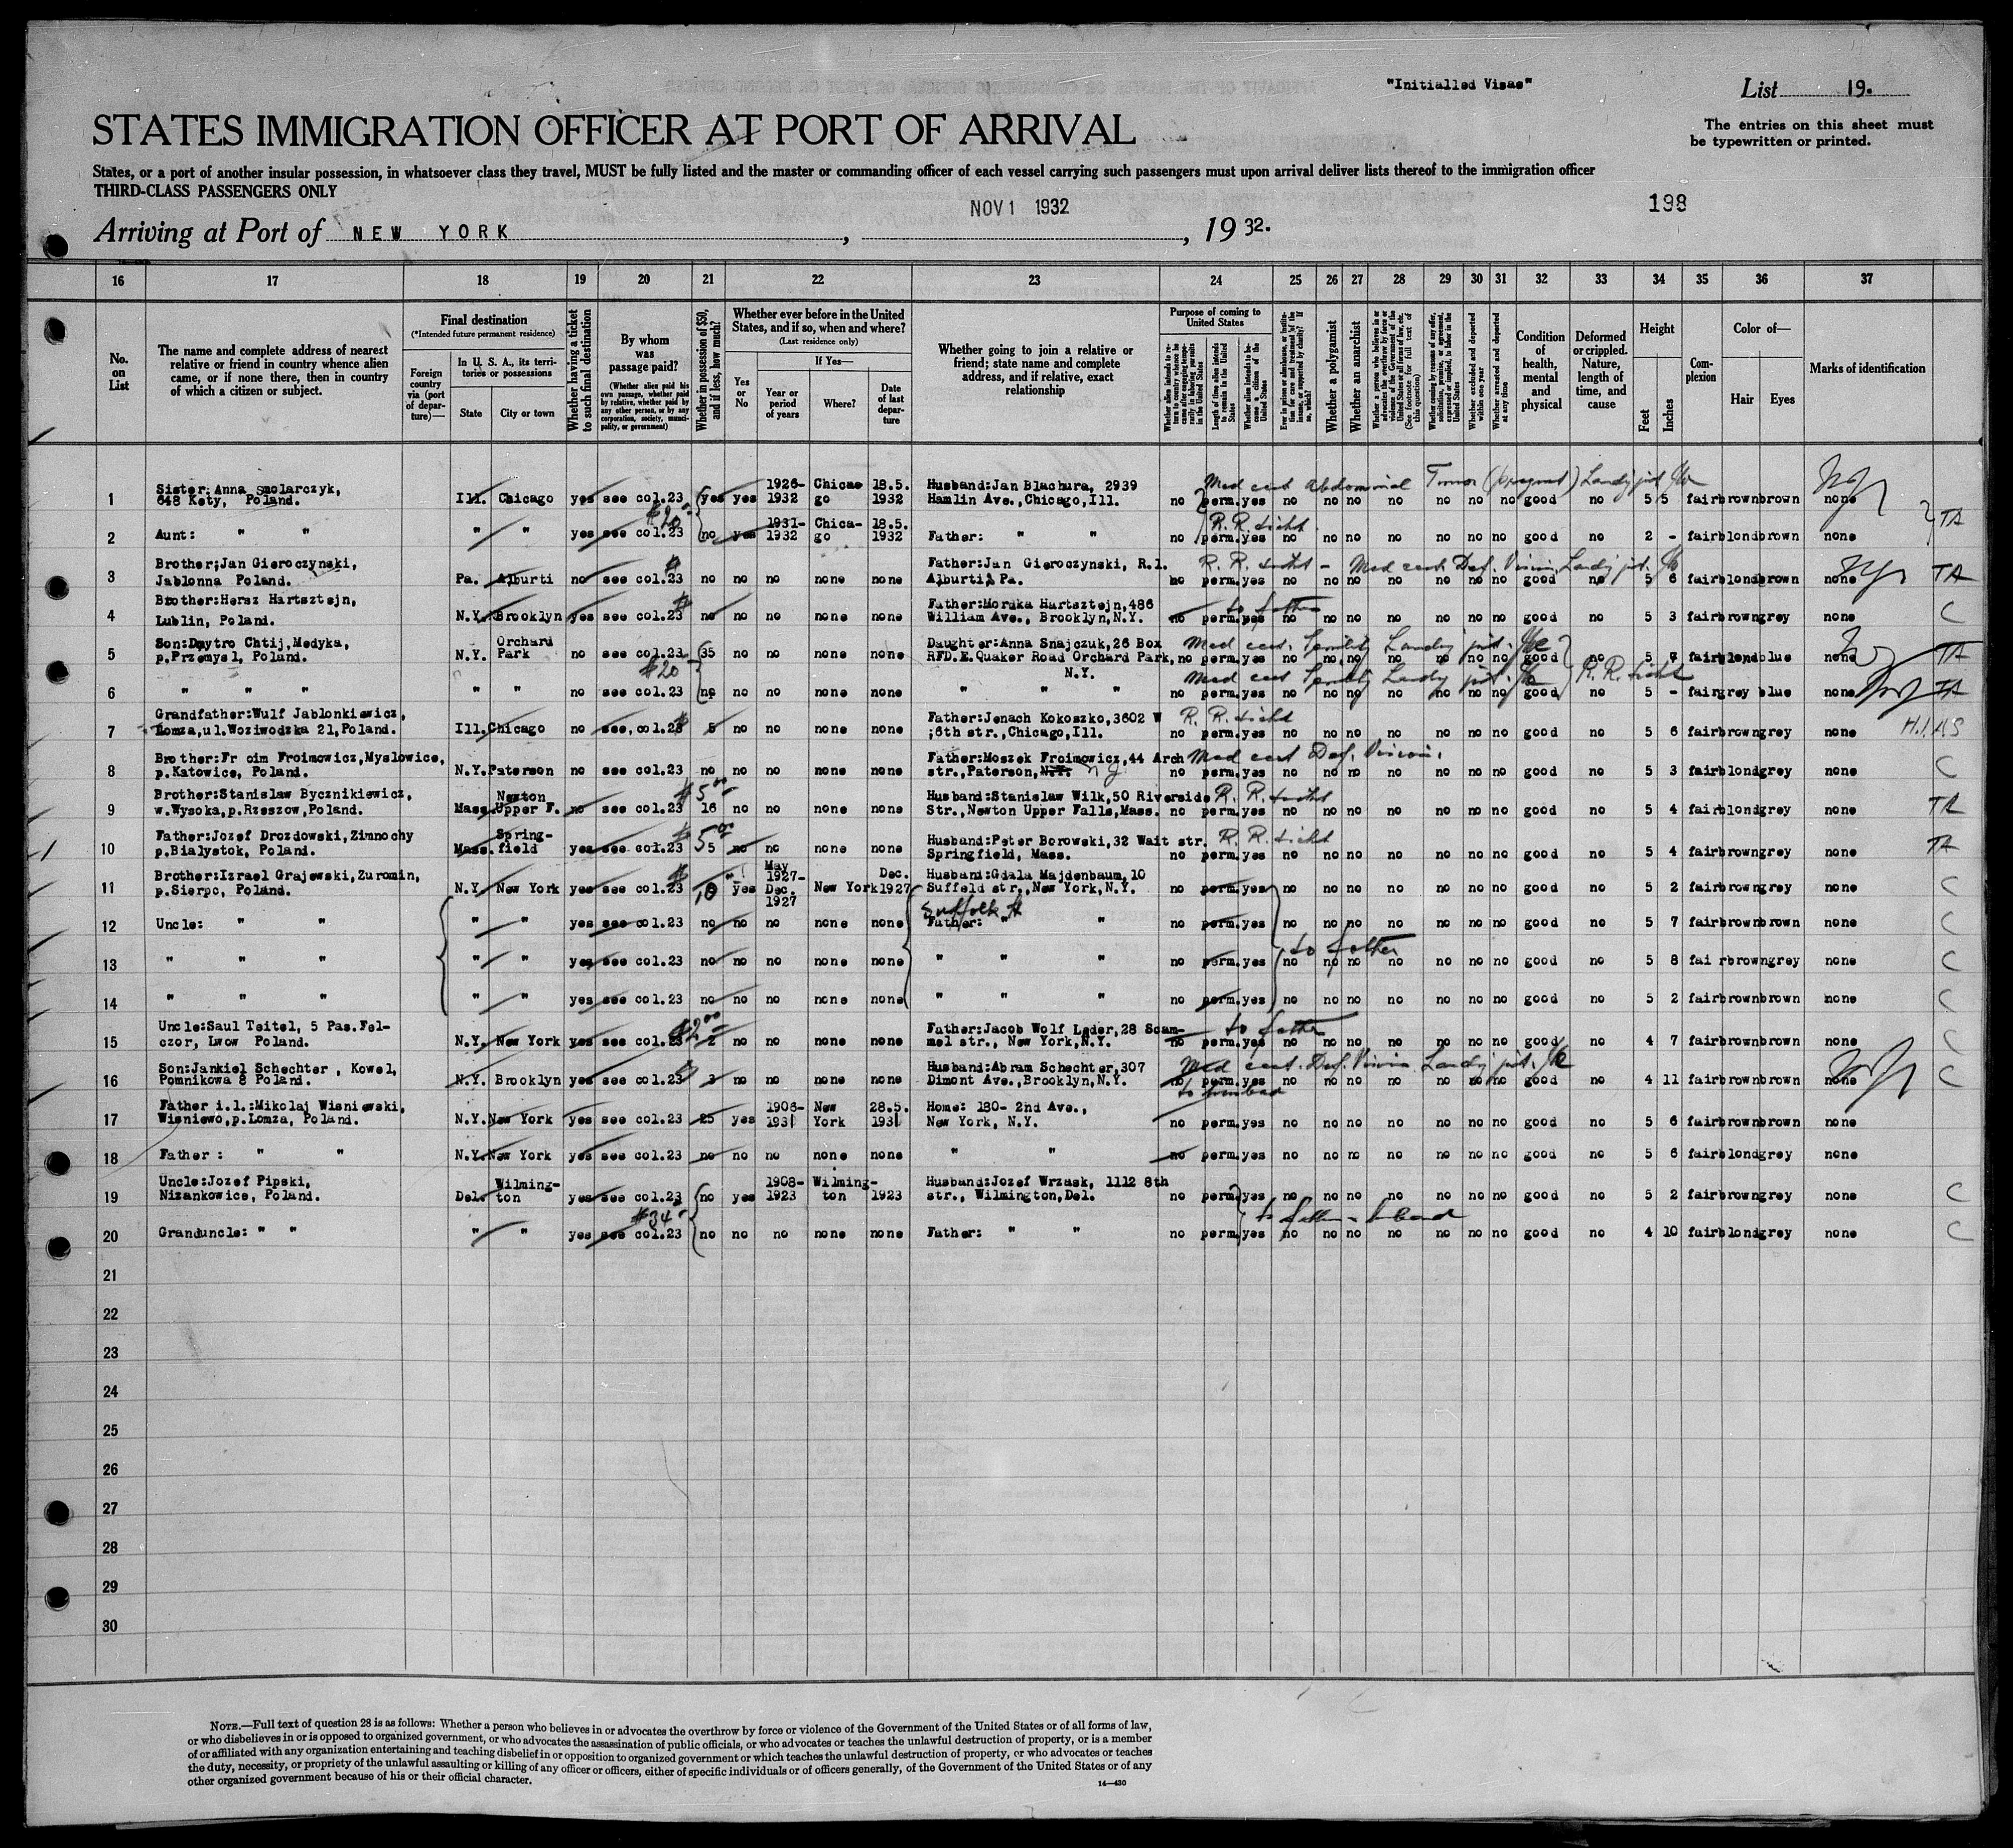 "Initialled Visas"
List 19.
STATES IMMIGRATION OFFICER AT PORT OF ARRIVAL
The entries on this sheet must
be typewritten or printed.
States, or a port of another insular possession, in whatsoever class they travel, MUST be fully listed and the master or commanding officer of each vessel carrying such passengers must upon arrival deliver lists thereof to the immigration officer
THIRD-CLASS PASSENGERS ONLY
NOV 1 1932
198
Arriving at Port of NEW YORK, , 1932.
16 17 18 19 20 21 22 23 24 25 26 27 28 29 30 31 32 33 34 35 36 37
No. on List
The name and complete address of nearest relative or friend in country whence alien came, or if none there, then in country of which a citizen or subject.
Final destination
(*Intended future permanent residence)
Foreign country via (port of departure)—
In U. S. A., its territories or possessions
State
City or town
Whether having a ticket to such final destination
By whom was passage paid?
(Whether alien paid his own passage, whether paid by relative, whether paid by any other person, or by any corporation, society, municipality, or government)
Whether in possession of $50, and if less, how much?
Whether ever before in the United States, and if so, when and where?
(Last residence only)
Yes or No
If Yes—
Year or period of years
Where?
Date of last departure
Whether going to join a relative or friend; state name and complete address, and if relative, exact relationship
Purpose of coming to United States
Length of time alien intends to remain in the United States
Whether alien intends to become a citizen of the United States
Whether a polygamist
Whether an anarchist
Whether excluded and deported within one year
Whether arrested and deported at any time
Condition of health, mental and physical
Deformed or crippled. Nature, length of time, and cause
Height
Feet
Inches
Complexion
Color of—
Hair
Eyes
Marks of identification
1 Sister:Anna Smolarczyk, 648 Kety, Poland. Ill. Chicago yes see col.23 yes yes 1926-1932 Chicago 18.5. 1932 Husband:Jan Blachura, 2939 Hamlin Ave.,Chicago,Ill. no perm.yes no no no no no no no good no 5 5 fair brown brown none
2 Aunt: " " " " yes see col.23 $20 no yes 1931-1932 Chica-go 18.5. 1932 Father: " " no perm.yes no no no no no no no good no 2 - fair blond brown none TA
3 Brother;Jan Gieroczynski, Jablonna Poland. Pa. Alburti no see col.23 no no no none none Father:Jan Gieroczynski, R.1. Alburti, Pa. no perm.yes no no no no no no no good no 5 6 fair blond brown none TA
4 Brother:Hersz Hartsztejn, Lublin, Poland. N.Y. Brooklyn yes see col.23 no no no none none Father:Mordka Hartsztejn,486 William Ave., Brooklyn,N.Y. to father no perm.yes no no no no no no no good no 5 3 fair brown grey none C
5 Son:Dmytro Chtij,Medyka, p.Przemysl, Poland. N.Y. Orchard Park no see col.23 35 no no none none Daughter:Anna Snajczuk,26 Box RFD.E.Quaker Road Orchard Park, N.Y. no perm.yes no no no no no no no good no 5 7 fair blond blue none TA
6 " " " " " no see col.23 $20 no no no none none " " " no perm.yes no no no no no no no good no R.R. ticht 5 - fair grey blue none TA
7 Grandfather:Wulf Jablonkiewicz, Lomza,ul.Woziwodzka 21,Poland. Ill.Chicago no see,col.23 5 no no none none Father:Jenach Kokoszko,3602 W ;6th str.,Chicago,Ill. R.R. ticht no perm.yes no no no no no no no good no 5 6 fair brown grey none H.I.A.S
8 Brother:Fr oim Froimowicz,Myslowice, p.Katowice, Poland. N.Y.Paterson no see col.23 no no no none none Father:Moszek Froimowicz,44 Arch str.,Paterson,N.Y. Med cert Def. Vision. no perm.yes no no no no no no no good no 5 3 fair blond grey none C
9 Brother:Stanislaw Bycznikiewicz, w.Wysoka,p.Rzeszow,Poland. Mass. Newton Upper F. no see col.23 $5 00 16 no no none none Husband:Stanislaw Wilk,50 Riverside Str.,Newton Upper Falls,Mass. R.R. ticht no perm.yes no no no no no no no good no 5 4 fair blond grey none TA
10 Father:Jozef Drozdowski,Zimnochy p.Bialystok, Poland. Mass. Spring-field yes see col.23 5 no no none none Husband:Peter Borowski,32 Wait str. Springfield, Mass. R.R. ticht no perm.yes no no no no no no no good no 5 4 fair brown grey none TA
11 Brother:Izrael Grajewski,Zuromin, p.Sierpc, Poland. N.Y. New York yes see col.23 10 yes May 1927-Dec. 1927 New York Dec. 1927 Husband:Gdala Majdenbaum,10 Suffeld str.,New York,N.Y. Suffolk St no perm.yes no no no no no no no good no 5 2 fair brown grey none C
12 Uncle: " " " " yes see col.23 no no no none none Father: " " no perm.yes no no no no no no no good no 5 7 fair brown brown none C
13 " " " " " yes see col.23 no no no none none " " " no perm.yes to father no no no no no no no good no 5 8 fai rbrown grey none C
14 " " " " " yes see col.23 no no no none none " " " no perm.yes no no no no no no no good no 5 2 fair brown brown none C
15 Uncle:Saul Teitel, 5 Pas.Fel-czor, Lwow Poland. N.Y. New York yes see col.23 $2 00 2 no no none none Father:Jacob Wolf Leder,28 Scam-mel str., New York,N.Y. to father no perm.yes no no no no no no no good no 4 7 fair brown brown none C
16 Son:Jankiel Schechter , Kowel, Pomnikowa 8 Poland. N.Y. Brooklyn yes see col.23 3 no no none none Husband:Abram Schechter,307 Dimont Ave.,Brooklyn,N.Y. Med cert. Def. Vision to husband no perm.yes no no no no no no no good no 4 11 fair brown brown none C
17 Father i.l.:Mikolaj Wisniewski, Wisniewo,p.Lomza, Poland. N.Y.New York yes see col.23 25 yes 1906-1931 New York 28.5. 1931 Home: 180- 2nd Ave., New York, N.Y. no perm.yes no no no no no no no good no 5 6 fair brown brown none
18 Father : " " N.Y.New York yes see col.23 no no no none none " " no perm.yes no no no no no no no good no 5 6 fair blond grey none
19 Uncle:Jozef Pipski, Nizankowice, Poland. Del. Wilming-ton yes see col.23 no yes 1908-1923 Wilming-ton 1923 Husband:Jozef Wrzask, 1112 8th str., Wilmington,Del. no perm.yes no no no no no no no good no 5 2 fair brown grey none C
20 Granduncle: " " " " yes see col.23 $34 no no no none none Father: " " no perm.yes no no no no no no no good no 4 10 fair blond grey none C
21
22
23
24
25
26
27
28
29
30
NOTE.—Full text of question 28 is as follows: Whether a person who believes in or advocates the overthrow by force or violence of the Government of the United States or of all forms of law,
or who disbelieves in or is opposed to organized government, or who advocates the assassination of public officials, or who advocates or teaches the unlawful destruction of property, or is a member
of or affiliated with any organization entertaining and teaching disbelief in or opposition to organized government or which teaches the unlawful destruction of property, or who advocates or teaches
the duty, necessity, or propriety of the unlawful assaulting or killing of any officer or officers, either of specific individuals or of officers generally, of the Government of the United States or of any
other organized government because of his or their official character.
14—430